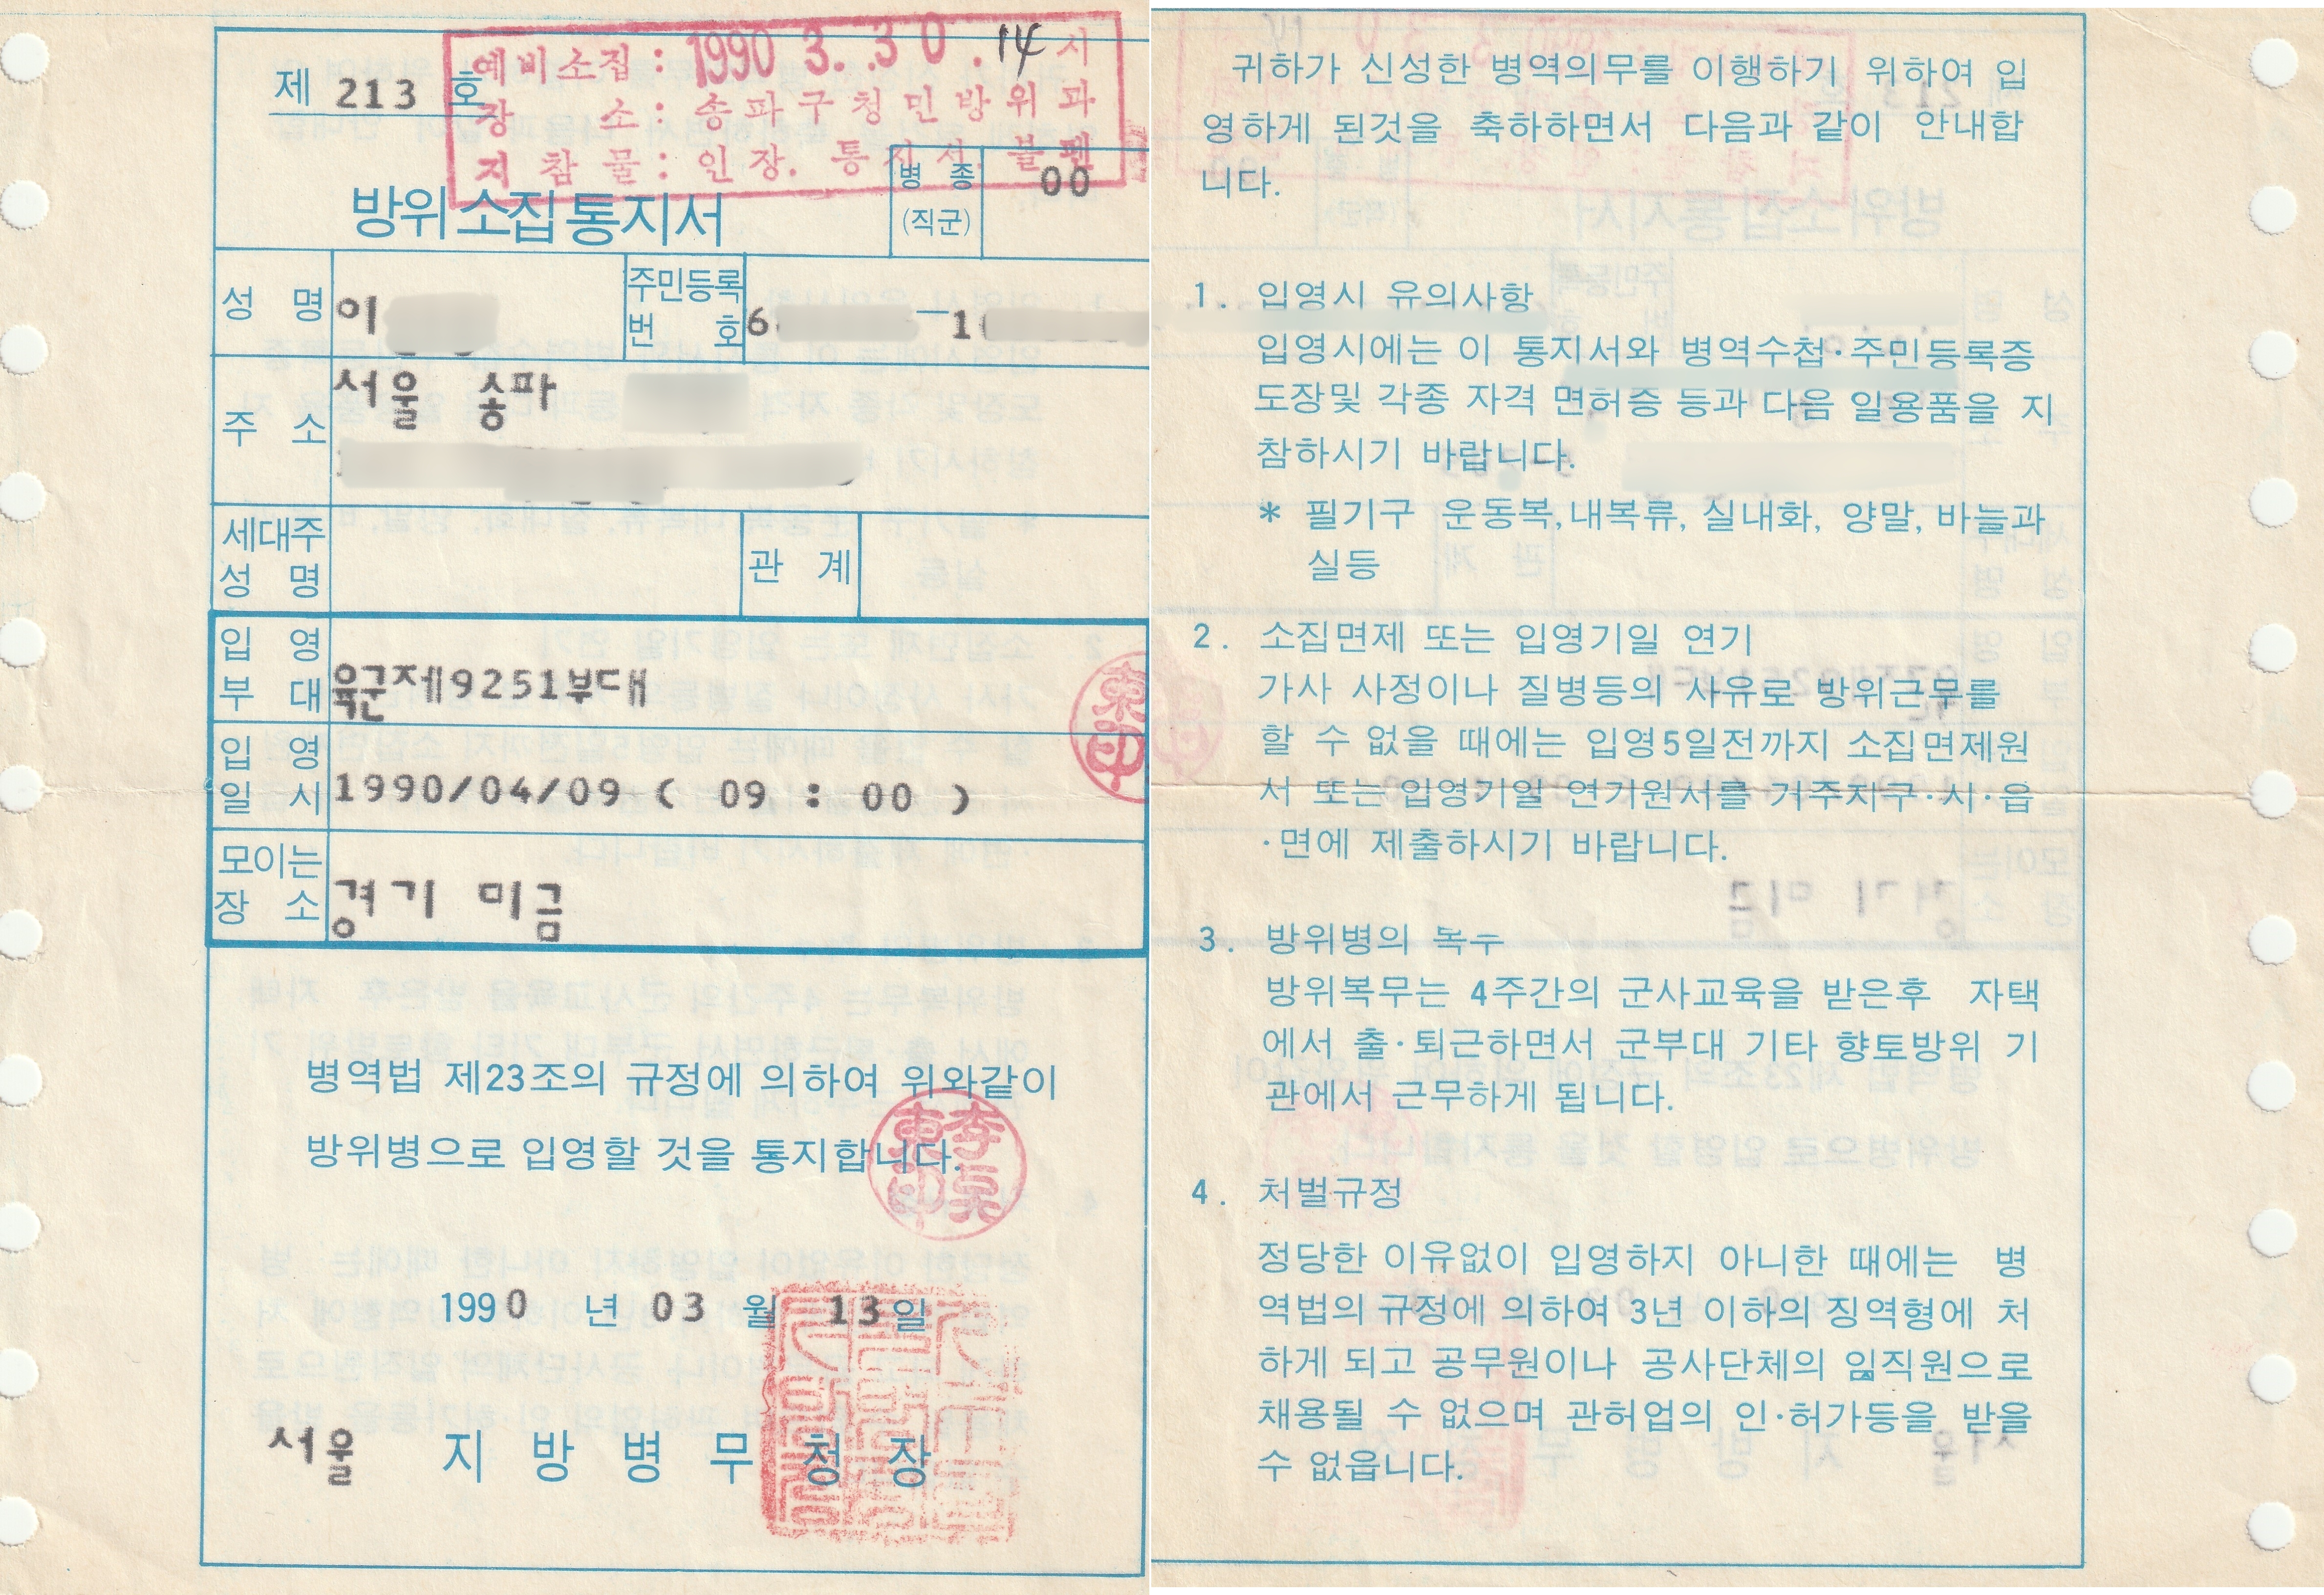 제 213 호
예비소집 : 1990 3. .30 .14 시
장 소 : 송파구청민방위과
지참물 : 인장. 통지서. 볼펜
방위소집통지서
병 종
(직군)
00
성 명
이
주민등록
번 호
6 – 1
주 소
서울 송파
세대주
성 명
관 계
입 영
부 대
육군제9251부대
입 영
일 시
1990/04/09 ( 09 : 00 )
모이는
장 소
경기 미금
병역법 제23조의 규정에 의하여 위와같이
방위병으로 입영할 것을 통지합니다.
1990 년 03 월 13 일
서울 지 방 병 무 청 장
귀하가 신성한 병역의무를 이행하기 위하여 입
영하게 된것을 축하하면서 다음과 같이 안내합
니다.
1. 입영시 유의사항
입영시에는 이 통지서와 병역수첩·주민등록증
도장및 각종 자격 면허증 등과 다음 일용품을 지
참하시기 바랍니다.
* 필기구 운동복, 내복류, 실내화, 양말, 바늘과
실등
2. 소집면제 또는 입영기일 연기
가사 사정이나 질병등의 사유로 방위근무를
할 수 없을 때에는 입영5일전까지 소집면제원
서 또는 입영기일 연기원서를 거주지구·시·읍
·면에 제출하시기 바랍니다.
3. 방위병의 복무
방위복무는 4주간의 군사교육을 받은후 자택
에서 출·퇴근하면서 군부대 기타 향토방위 기
관에서 근무하게 됩니다.
4. 처벌규정
정당한 이유없이 입영하지 아니한 때에는 병
역법의 규정에 의하여 3년 이하의 징역형에 처
하게 되고 공무원이나 공사단체의 임직원으로
채용될 수 없으며 관허업의 인·허가등을 받을
수 없읍니다.